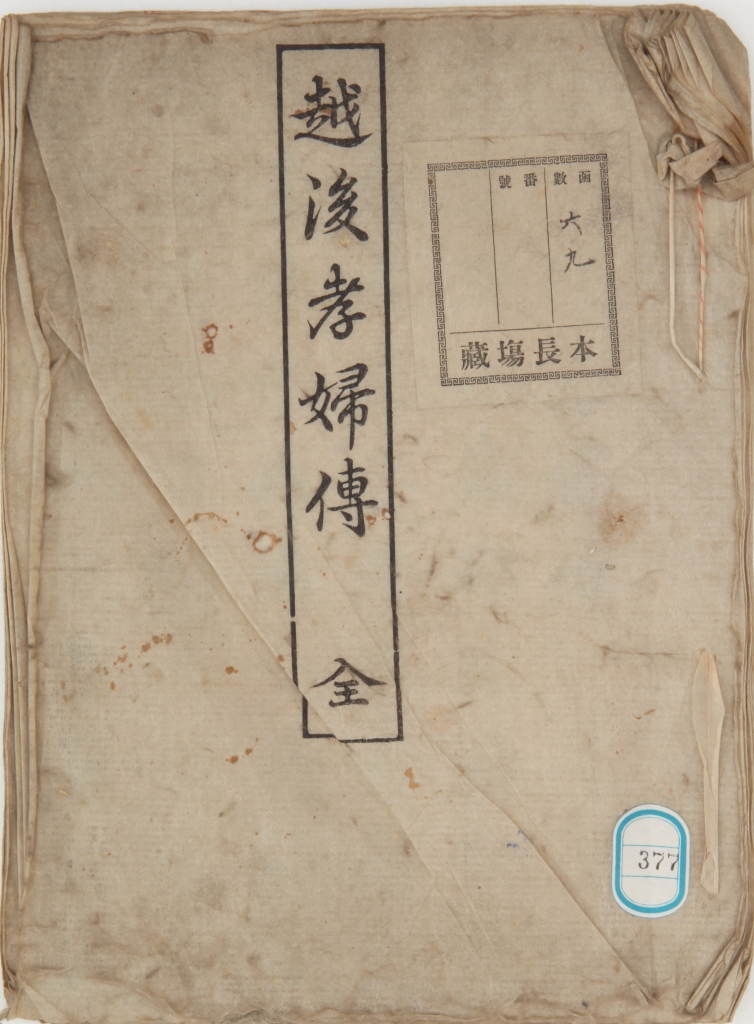 越後孝婦傳 全
函數
六九
番號
本長塲藏
377